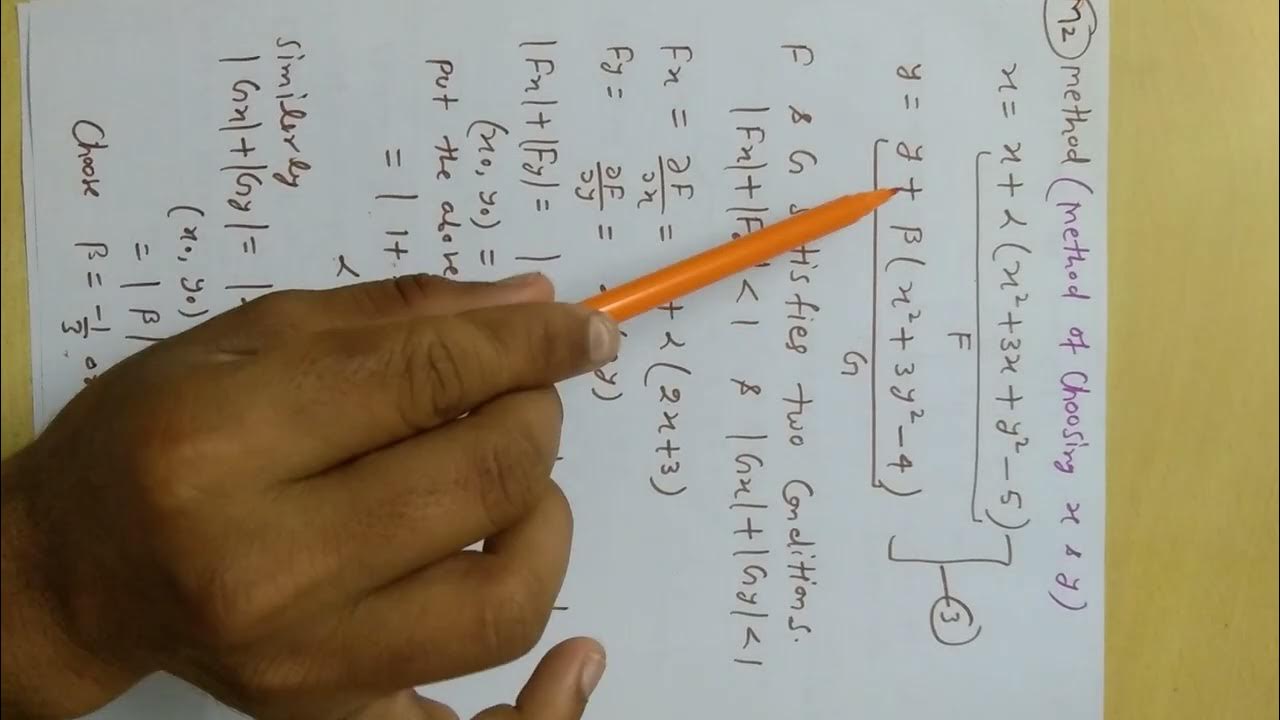 η2 method (method of choosing x & y)
x = x + α (x² + 3x + y² – 5)
F
y = y + β (x² + 3y² – 4)
G
3
F & G satisfies two Conditions.
|Fx| + |Fy| < 1 & |Gx| + |Gy| < 1
Fx = ∂F/∂x = + α (2x+3)
Fy = ∂F/∂y = y)
|Fx| + |Fy| = |
(x0, y0) =
put the above
= | 1 +
α
Similarly
|Gx| + |Gy| = |
(x0, y0)
= | β |
Choose β = -1/3.